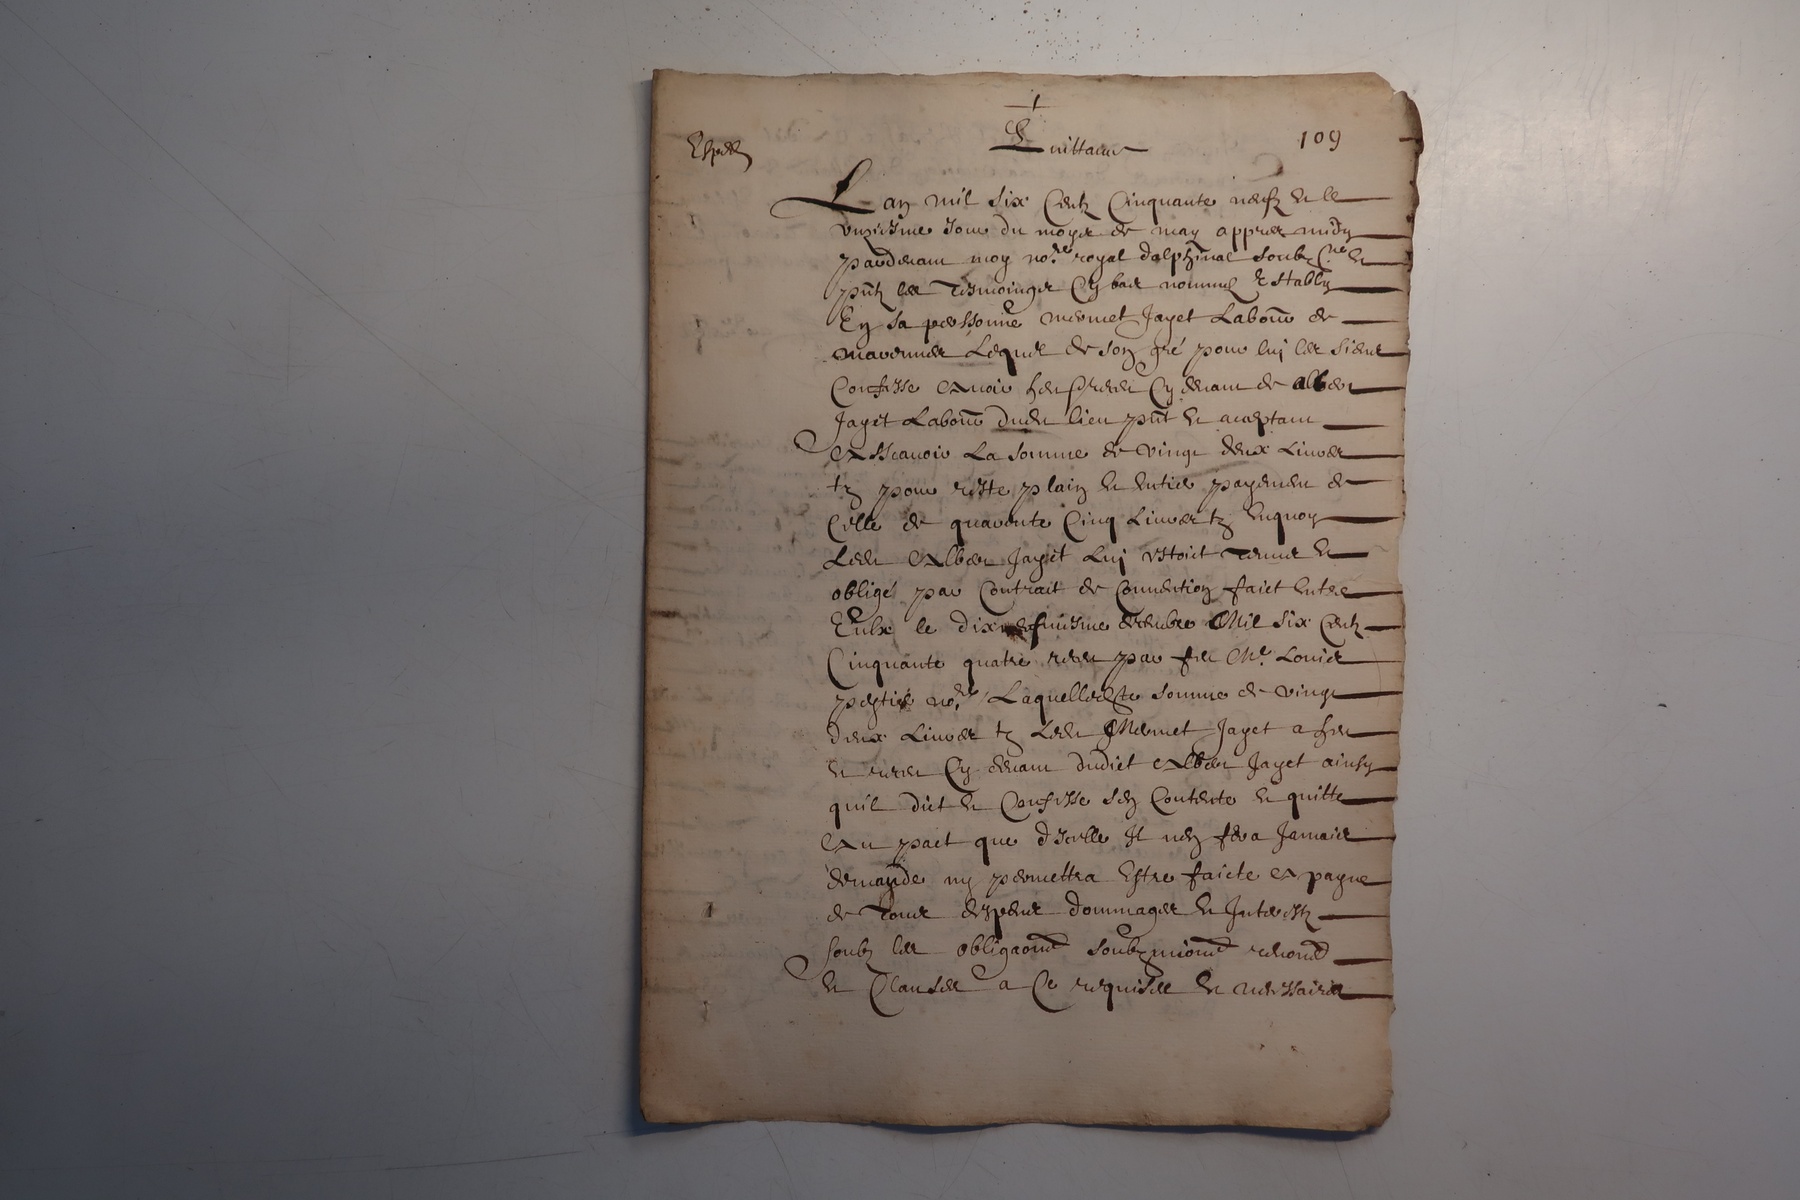 Exped
Quittance
109
Lan mil six centz cinquante neufz et le
unziesme jour du moys de may appres midy
pardevant moy no.re royal dalphinal soubz.né et
pntz les tesmoinges cy bas nommes establys
En sa personne mermet Jayet Labour de
Lequel de son gré pour luy les siens
Confesse avoir heu et receu cy devant de alben
Jayet Labour dudit lieu pnt et aceptant
Asscavoir La somme de vingt deux Livres
tz pour reste plain et entier payement de
Celle de quarente cinq Livres tz enquoy
Ledit Alben Jayet Luy estoict tenut et
obligé par Contrait de Convention faict entre
Eulx le dix Mil six centz
Cinquante quatre receu par feu Me. Louis
no.re Laquelledte somme de vingt
deux Livres tz Ledit Mermet Jayet a heu
et receu cy devant dudict Alben Jayet ainsy
quil dict et Confesse sen Contente et quitte
Au pact que dicelle Il nen fera Jamais
demande ny permettra Estre faicte A payne
de tous despens dommages et Interestz
soubz les obligaons soubzmions renons
et Clauses a Ce requises et necessaires